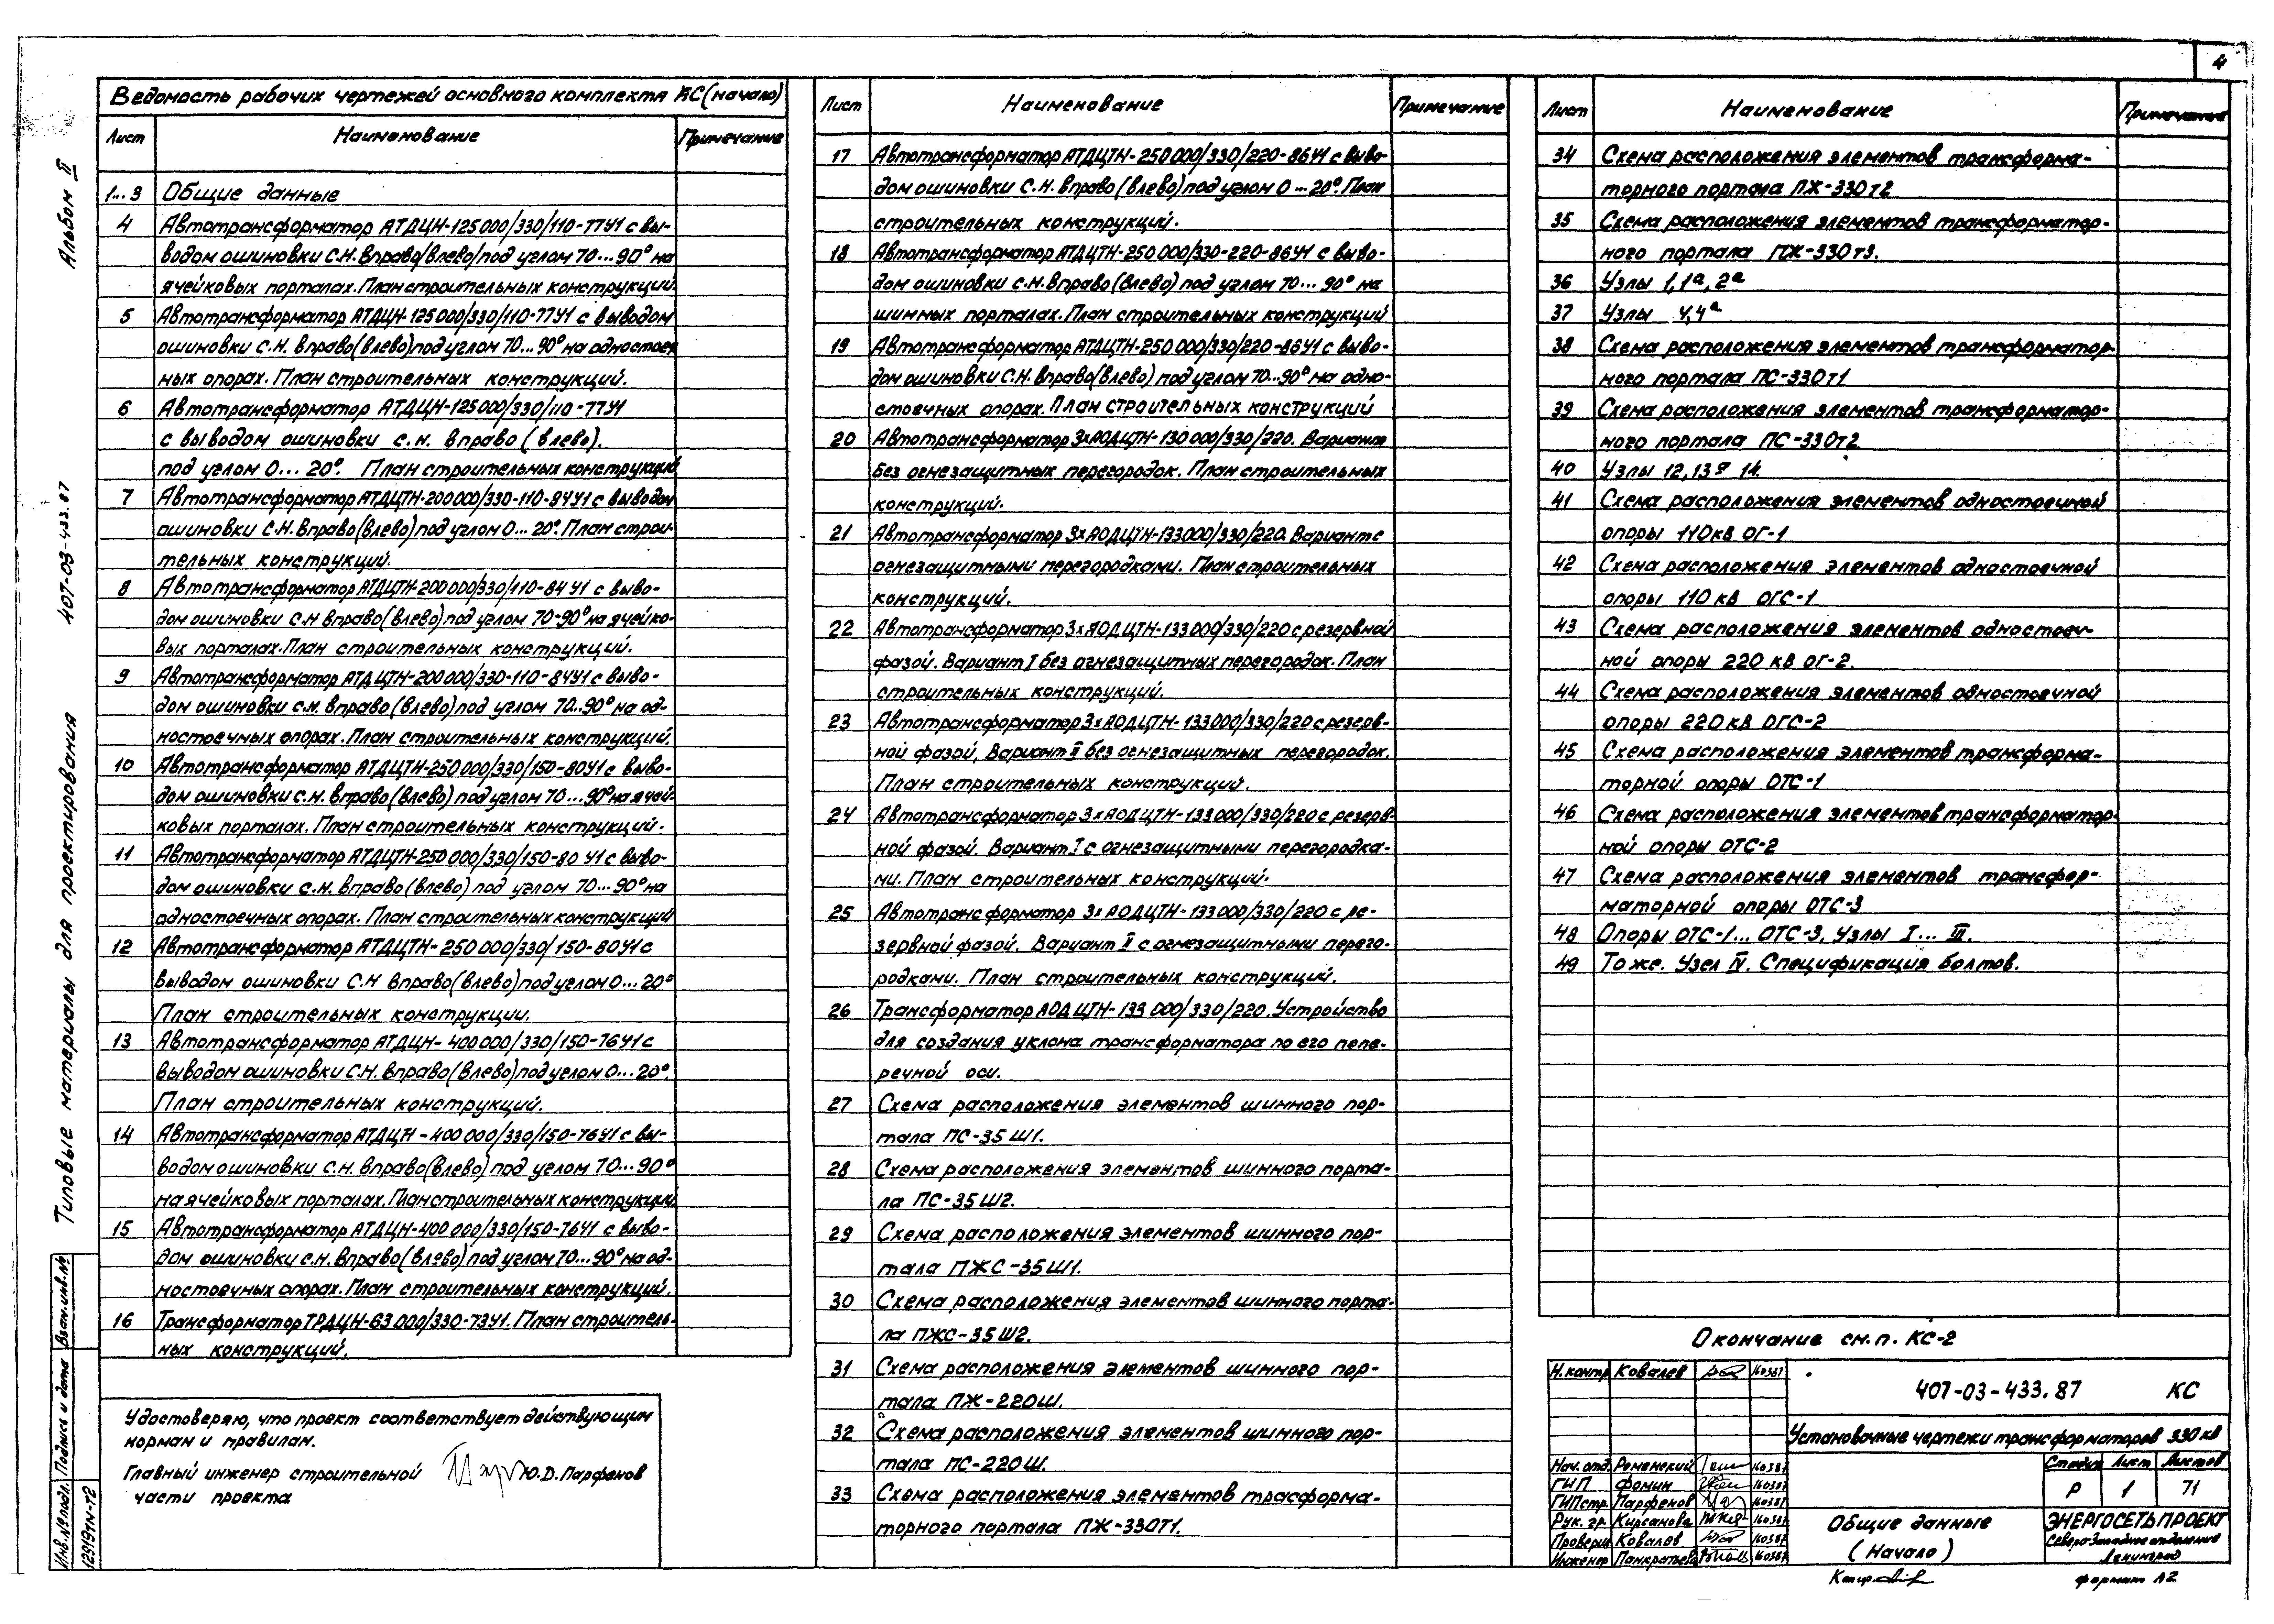 4
Альбом II
407-03-433.87
Типовые материалы для проектирования
Ведомость рабочих чертежей основного комплекта КС (начало)
Лист Наименование Примечание
1...3 Общие данные
4 Автотрансформатор АТДЦН-125000/330/110-77У1 с вы-
водом ошиновки С.Н. вправо(влево) под углом 70...90° на
ячейковых порталах. План строительных конструкций
5 Автотрансформатор АТДЦН-125000/330/110-77У1 с выводом
ошиновки С.Н. вправо(влево) под углом 70...90° на одностоеч
ных опорах. План строительных конструкций.
6 Автотрансформатор АТДЦН-125000/330/110-77У1
с выводом ошиновки с.н. вправо (влево).
под углом 0...20°. План строительных конструкций
7 Автотрансформатор АТДЦТН-200000/330-110-84У1 с выводом
ошиновки С.Н. вправо(влево) под углом 0...20°. План строи-
тельных конструкций.
8 Автотрансформатор АТДЦТН-200000/330/110-84У1 с выво-
дом ошиновки С.Н вправо(влево) под углом 70-90° на ячейко-
вых порталах. План строительных конструкций.
9 Автотрансформатор АТДЦТН-200000/330-110-84У1 с выво-
дом ошиновки с.н. вправо(влево) под углом 70..90° на од-
ностоечных опорах. План строительных конструкций.
10 Автотрансформатор АТДЦТН-250000/330/150-80У1 с выво-
дом ошиновки с.н. вправо(влево) под углом 70...90° на ячей-
ковых порталах. План строительных конструкций.
11 Автотрансформатор АТДЦТН-250000/330/150-80У1 с выво-
дом ошиновки с.н. вправо(влево) под углом 70...90° на
одностоечных опорах. План строительных конструкций
12 Автотрансформатор АТДЦТН-250000/330/150-80У1 с
выводом ошиновки С.Н вправо(влево) под углом 0...20°
План строительных конструкций.
13 Автотрансформатор АТДЦН-400000/330/150-76У1 с
выводом ошиновки С.Н. вправо(влево) под углом 0...20°.
План строительных конструкций.
14 Автотрансформатор АТДЦН-400000/330/150-76У1 с вы-
водом ошиновки с.н. вправо(влево) под углом 70...90°
на ячейковых порталах. План строительных конструкций.
15 Автотрансформатор АТДЦН-400000/330/150-76У1 с выво-
дом ошиновки с.н. вправо(влево) под углом 70...90° на од-
ностоечных опорах. План строительных конструкций.
16 Трансформатор ТРДЦН-63000/330-73У1. План строитель-
ных конструкций.
Удостоверяю, что проект соответствует действующим
нормам и правилам.
Главный инженер строительной Ю.Д.Парфенов
части проекта
Взам.инв.№
Подпись и дата
Инв.№подл.
12919тм-т2
Лист Наименование Примечание
17 Автотрансформатор АТДЦТН-250000/330/220-86У1 с выво-
дом ошиновки С.Н. вправо(влево) под углом 0...20°. План
строительных конструкций.
18 Автотрансформатор АТДЦТН-250000/330-220-86У1 с выво-
дом ошиновки с.н. вправо(влево) под углом 70...90° на
шинных порталах. План строительных конструкций
19 Автотрансформатор АТДЦТН-250000/330/220-86У1 с выво-
дом ошиновки С.Н. вправо(влево) под углом 70...90° на одно-
стоечных опорах. План строительных конструкций
20 Автотрансформатор 3хАОДЦТН-130000/330/220. Вариант
без огнезащитных перегородок. План строительных
конструкций.
21 Автотрансформатор 3хАОДЦТН-133000/330/220. Вариант с
огнезащитными перегородками. План строительных
конструкций.
22 Автотрансформатор 3хАОДЦТН-133000/330/220 с резервной
фазой. Вариант I без огнезащитных перегородок. План
строительных конструкций.
23 Автотрансформатор 3хАОДЦТН-133000/330/220 с резерв-
ной фазой, Вариант II без огнезащитных перегородок.
План строительных конструкций.
24 Автотрансформатор 3хАОДЦТН-133000/330/220 с резерв-
ной фазой. Вариант I с огнезащитными перегородка-
ми. План строительных конструкций.
25 Автотрансформатор 3хАОДЦТН-133000/330/220 с ре-
зервной фазой. Вариант II с огнезащитными перего-
родками. План строительных конструкций.
26 Трансформатор АОДЦТН-133000/330/220. Устройство
для создания уклона трансформатора по его попе-
речной оси.
27 Схема расположения элементов шинного пор-
тала ПС-35Ш1.
28 Схема расположения элементов шинного порта-
ла ПС-35Ш2.
29 Схема расположения элементов шинного пор-
тала ПЖС-35Ш1.
30 Схема расположения элементов шинного порта-
ла ПЖС-35Ш2.
31 Схема расположения элементов шинного пор-
тала ПЖ-220Ш.
32 Схема расположения элементов шинного пор-
тала ПС-220Ш.
33 Схема расположения элементов трасформа-
торного портала ПЖ-330Т1.
Лист Наименование Примечание
34 Схема расположения элементов трансформа-
торного портала ПЖ-330т2
35 Схема расположения элементов трансформатор-
ного портала ПЖ-330т3.
36 Узлы 1,1ª,2ª
37 Узлы 4,4ª
38 Схема расположения элементов трансформатор-
ного портала ПС-330т1
39 Схема расположения элементов трансформатор-
ного портала ПС-330т2
40 Узлы 12,13 14.
41 Схема расположения элементов одностоечной
опоры 110кв ОГ-1
42 Схема расположения элементов одностоечной
опоры 110 кв ОГС-1
43 Схема расположения элементов одностоеч-
ной опоры 220 кв ОГ-2.
44 Схема расположения элементов одностоечной
опоры 220кв ОГС-2
45 Схема расположения элементов трансформа-
торной опоры ОТС-1
46 Схема расположения элементов трансформатор-
ной опоры ОТС-2
47 Схема расположения элементов трансфор-
маторной опоры ОТС-3
48 Опоры ОТС-1...ОТС-3. Узлы I...III.
49 То же. Узел IV. Спецификация болтов.
Окончание см.п. КС-2
Н.контр Ковалев 160387
407-03-433.87 КС
Установочные чертежи трансформаторов 330кв
Нач.отд. Роменский 160387
ГИП Фомин 160387
ГИПстр. Парфенов 160387
Рук.гр. Кирсанова 160387
Проверил Ковалов 160387
Инженер Панкратьева 160387
Стадия Лист Листов
Р 1 71
Общие данные
(Начало)
ЭНЕРГОСЕТЬПРОЕКТ
Северо-Западное отделение
Ленинград
Копир.
формат А2